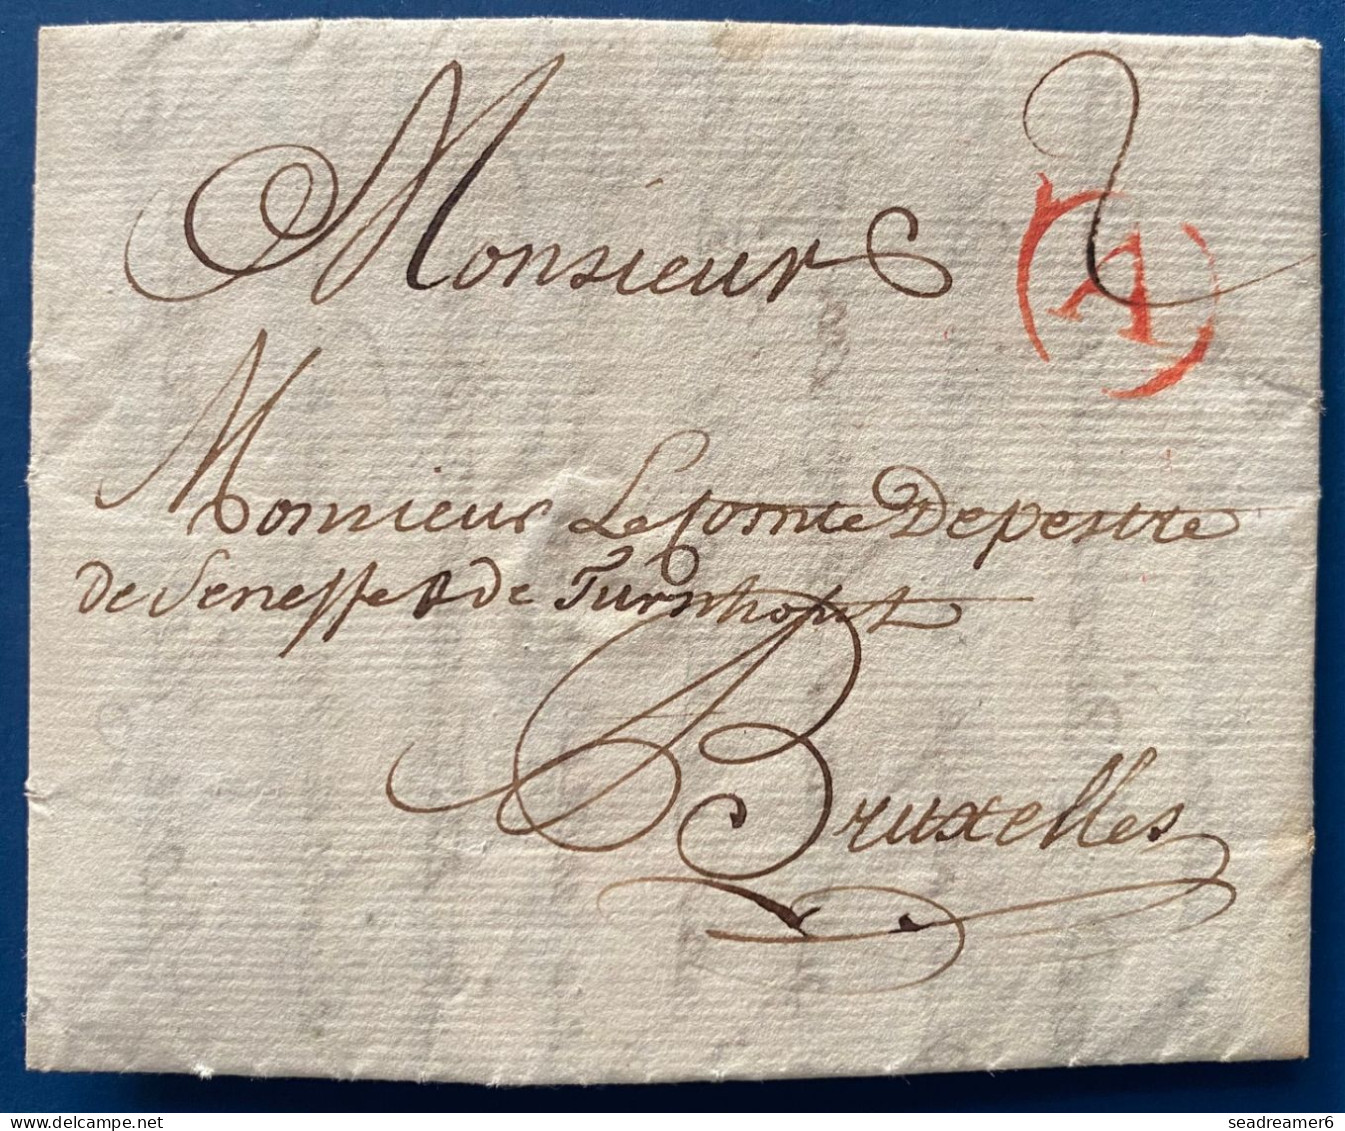 Monsieur
2
A
Monsieur Le Comte Depestre
de Seneffe & de Turnhout
Bruxelles
seadreamer6
delcampe.net